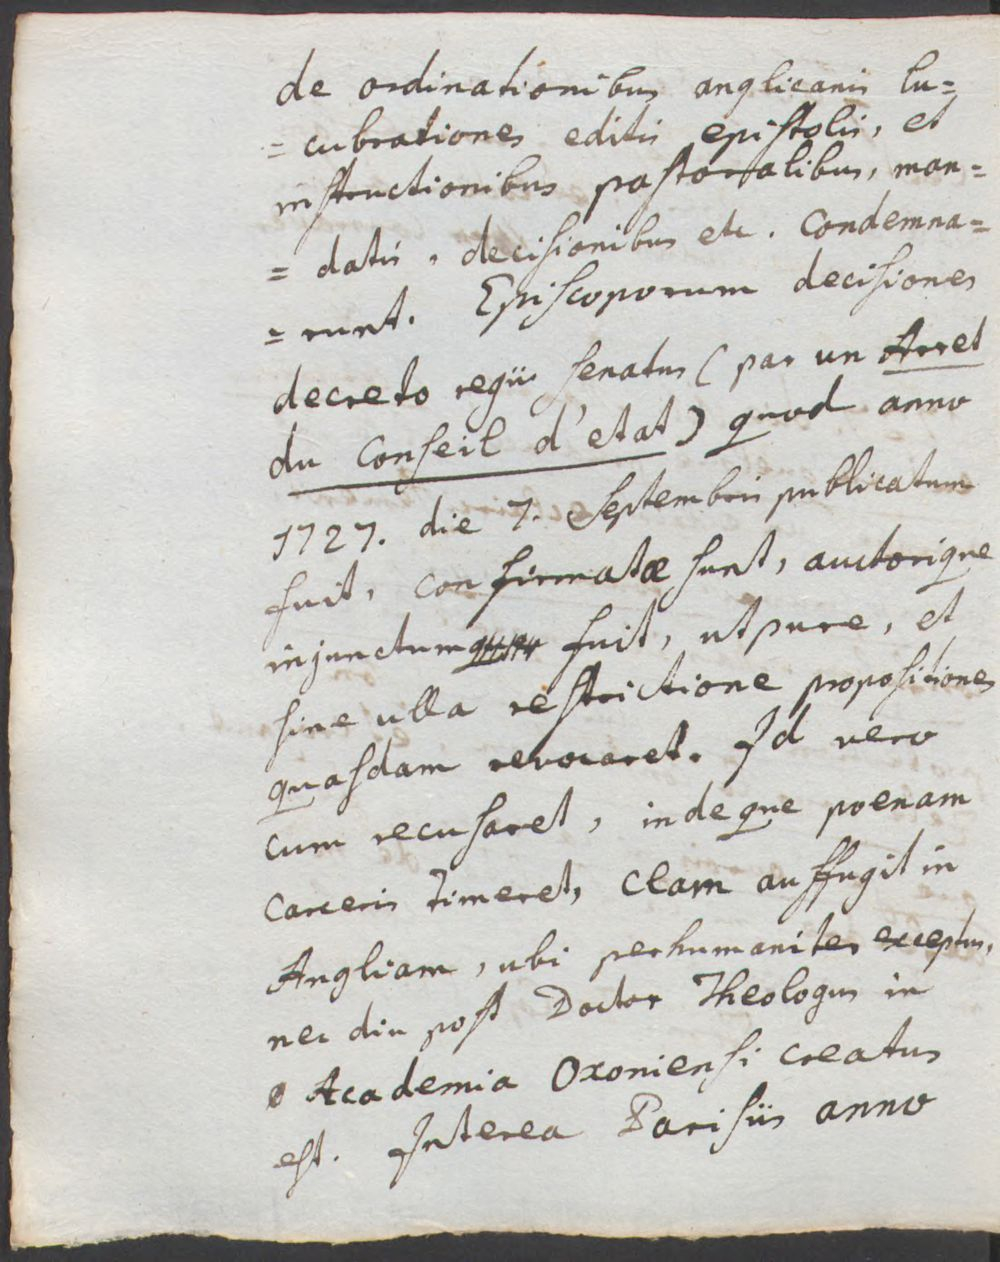 de ordinationibus anglicanis lu=
= cubrationes editis epistolis, et
instructionibus pastoralibus, man=
= datis, decisionibus etc. Condemna=
= runt. Episcoporum decisiones
decreto regii senatus (par un Arret
du Conseil d'etat) quod anno
1727. die 7. Septembris publicatum
fuit, confirmatæ sunt, auctorique
injunctum fuit, ut pure, et
sine ulla restrictione propositiones
quasdam revocaret. Id vero
cum recusaret, indeque poenam
carceris timeret, clam auffugit in
Angliam, ubi perhumaniter exceptus,
nec diu post Doctor Theologus in
Academia Oxoniensi creatus
est. Interea Parisiis anno